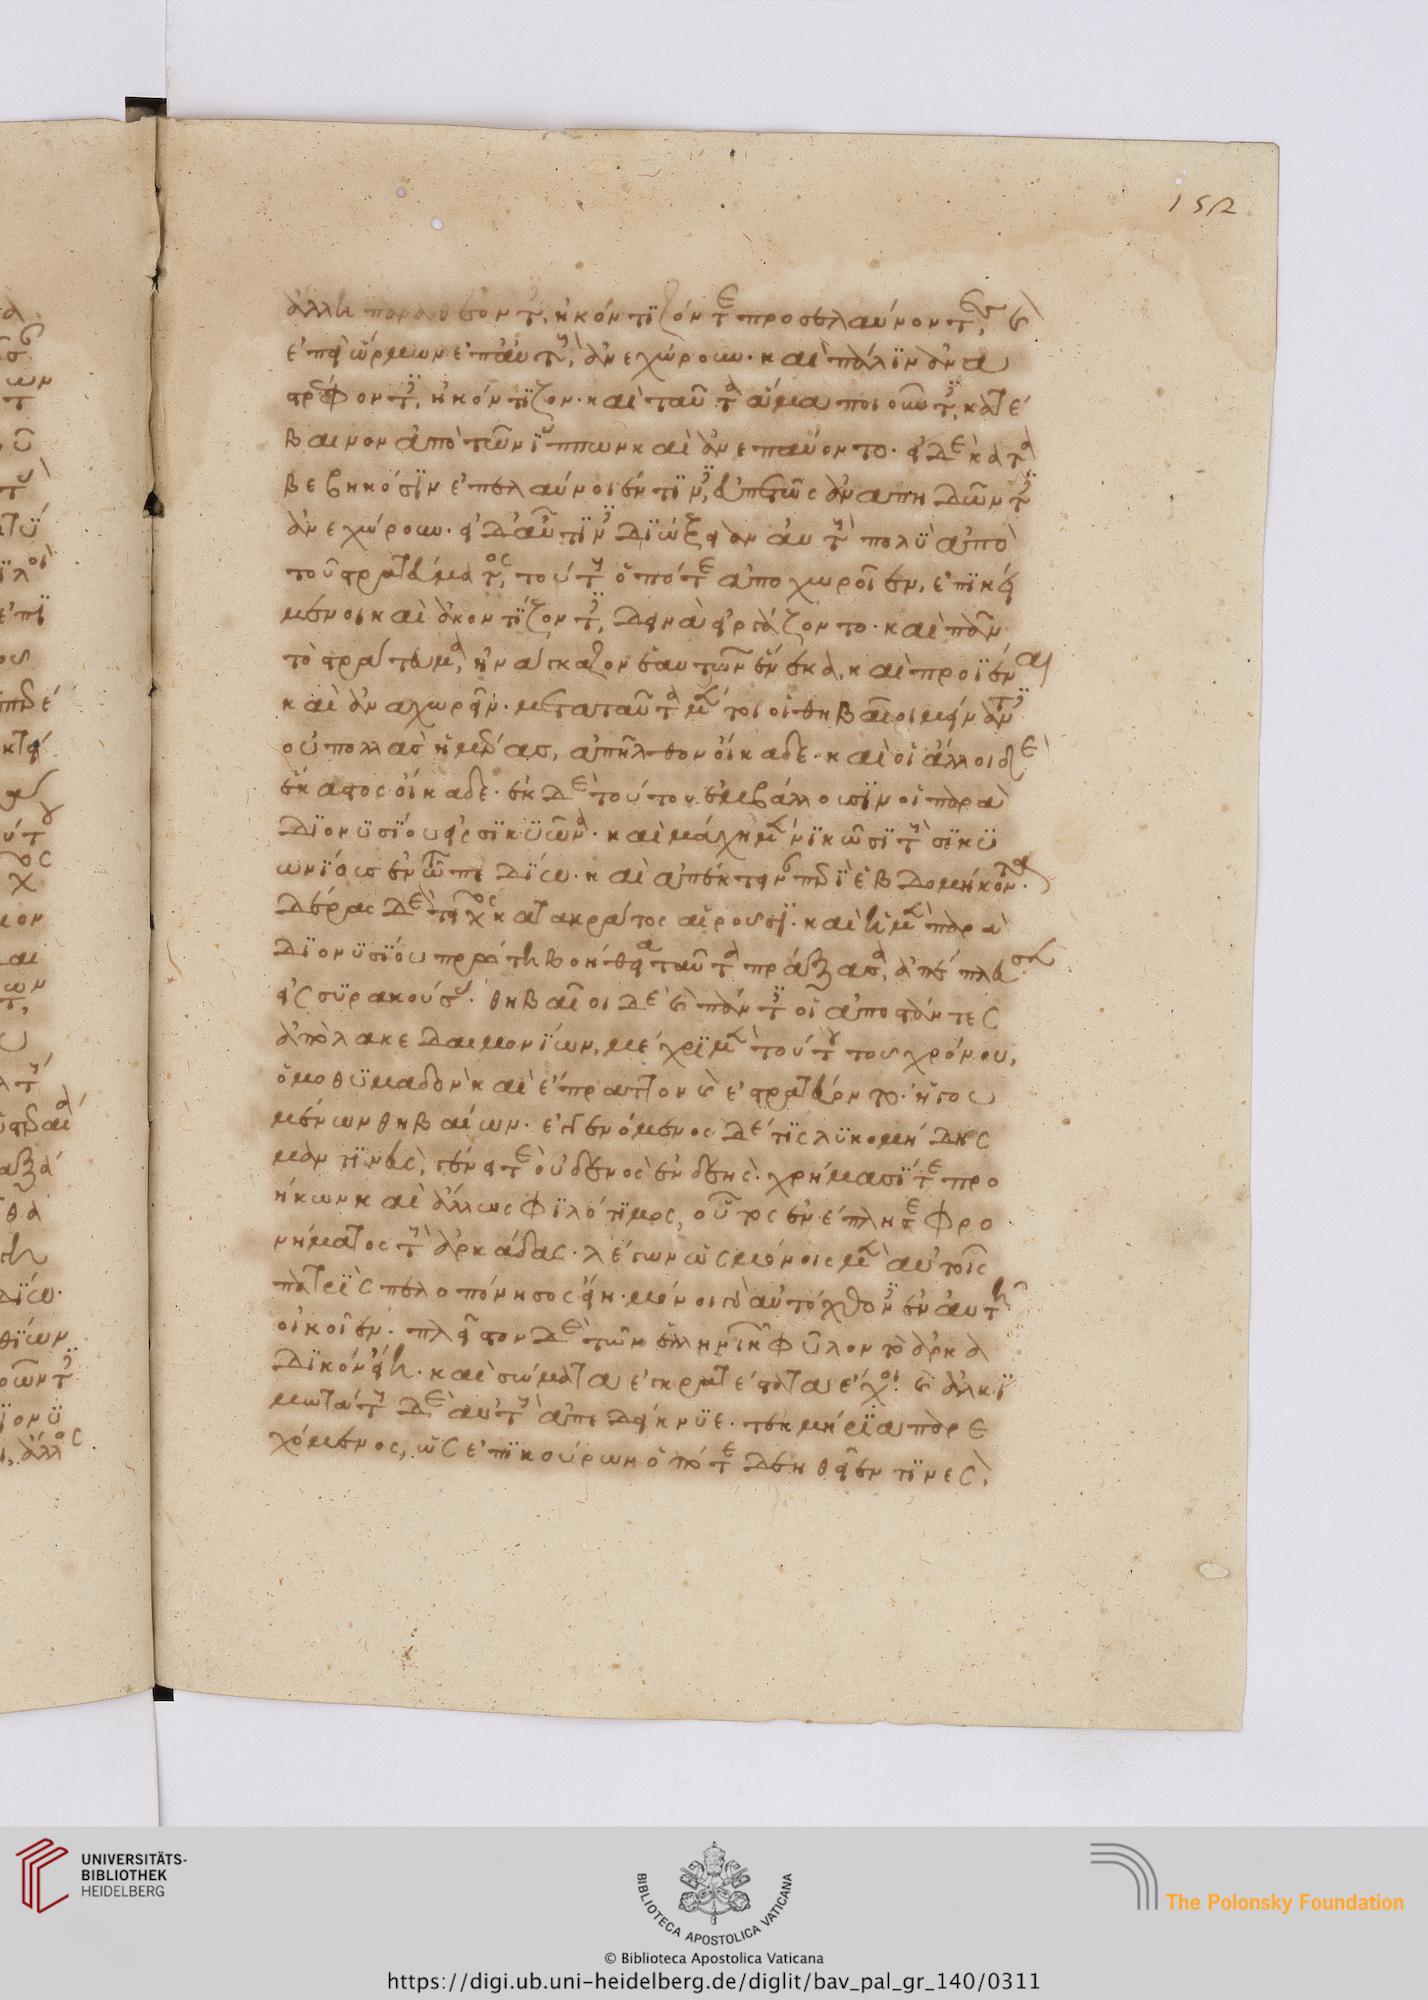 ἄλλη παραθέοντες, ἠκόντιζόν τε προσελαύνοντες, καὶ
ἐπεὶ ὥρμων ἐπ' αὐτοὺς, ἀνεχώρουν. καὶ πάλιν ἀνα
στρέφοντες, ἠκόντιζον. καὶ ταῦτα ἅμα ποιοῦντες, κατέ
βαινον ἀπὸ τῶν ἵππων καὶ ἀνεπαύοντο. εἰ δὲ κατα
βεβηκόσιν ἐπελαύνοιέν τινες, εὐπετῶς ἀναπηδῶντες
ἀνεχώρουν. εἰ δ' αὖ τινες διώξειαν αὐτοὺς πολὺ ἀπὸ
τοῦ στρατεύματος, τούτους ὁπότε ἀποχωροῖεν, ἐπικεί
μενοι καὶ ἀκοντίζοντες, δεινὰ εἰργάζοντο. καὶ πᾶν
τὸ στράτευμα, ἠνάγκαζον ἑαυτῶν ἕνεκα, καὶ προϊέναι
καὶ ἀναχωρεῖν. μετὰ ταῦτα μέντοι οἱ θηβαῖοι μείναντες
οὐ πολλὰς ἡμέρας, ἀπῆλθον οἴκαδε. καὶ οἱ ἄλλοι δὲ
ἕκαστος οἴκαδε. ἐκ δὲ τούτου ἐμβάλλουσιν οἱ παρὰ
Διονυσίου εἰς σικυῶνα. καὶ μάχη μὲν νικῶσι τοὺς σικυ
ωνίους ἐν τῶ πεδίω. καὶ ἀπέκτειναν περὶ ἑβδομήκοντα.
Δέρας δὲ τεῖχος κατακράτος αἱροῦσι. καὶ ἡ μὲν παρὰ
Διονυσίου πρώτη βοήθεια ταῦτα πράξασα, ἀπέπλευσεν
εἰς συρακούσας. θηβαῖοι δὲ καὶ πάντες οἱ ἀποστάντες
ἀπὸ λακεδαιμονίων, μέχρι μὲν τούτου τοῦ χρόνου,
ὁμοθυμαδὸν καὶ ἔπραττον καὶ ἐστρατεύοντο. ἡγου
μένων θηβαίων. ἐγγενόμενος δέ τις λυκομήδης
μαντινεὺς, γένει τε οὐδενὸς ἐνδεὴς. χρήμασί τε προ
ήκων καὶ ἄλλως φιλότιμος, οὗτος ἐνέπλησε φρο
νήματος τοὺς ἀρκάδας. λέγων ὡς μόνοις μὲν αὐτοῖς
πατρὶς πελοπόνησος εἴη. μόνοι γὰρ αὐτόχθονες ἐν αὐτῆ
οἰκοῖεν. πλεῖστον δὲ τῶν ἑλληνικῶν φῦλον τὸ ἀρκα
Δικὸν εἴη. καὶ σώματα ἐγκρατέστατα ἔχοι. καὶ ἀλκι
μωτάτους δὲ αὐτοὺς ἀπεδείκνυε. τεκμήρια παρε
χόμενος, ὡς ἐπικούρων ὁπότε δεηθεῖεν τινες,
152
UNIVERSITÄTS-
BIBLIOTHEK
HEIDELBERG
BIBLIOTECA APOSTOLICA VATICANA
The Polonsky Foundation
© Biblioteca Apostolica Vaticana
https://digi.ub.uni-heidelberg.de/diglit/bav_pal_gr_140/0311